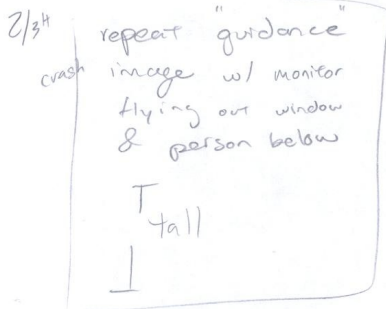 2/3H
repeat "guidance"
crash image w/ monitor
flying out window
& person below
tall